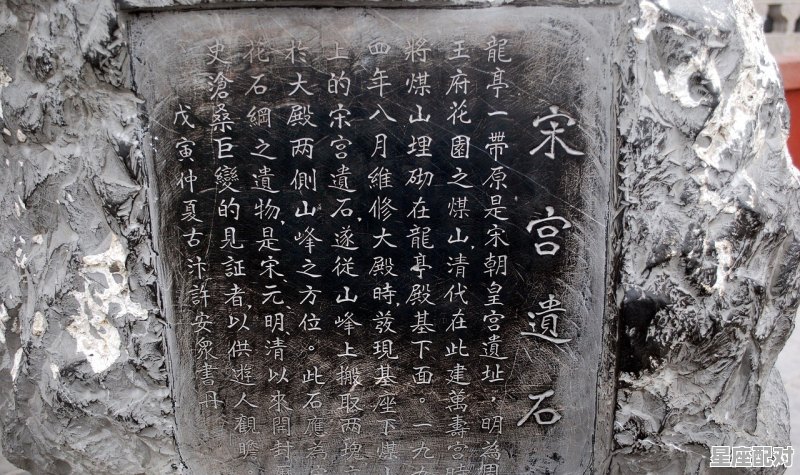 宋宮遺石
龍亭一帶原是宋朝皇宮遺址，明為周
王府花園之煤山，清代在此建萬壽宮時
將煤山埋砌在龍亭殿基下面。一九九
四年八月維修大殿時，發現基座下煤山
上的宋宮遺石，遂從山峰上搬取兩塊，
於大殿两側山峰之方位。此石應為
花石綱之遺物，是宋、元、明、清以來開封
史滄桑巨變的見証者，以供遊人觀瞻
戊寅仲夏古汴許安眾書丹
星座配对